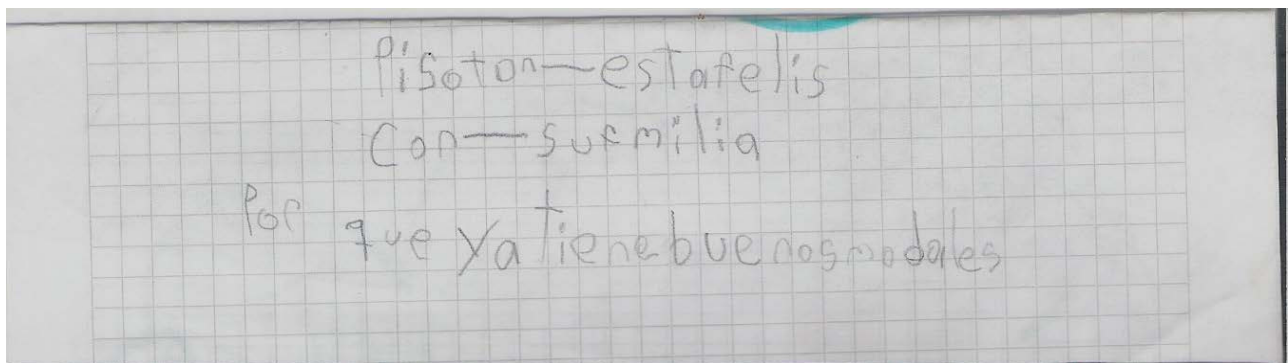 Pisoton—estafelis
Con—sufmilia
Por que ya tienebuenosmodales